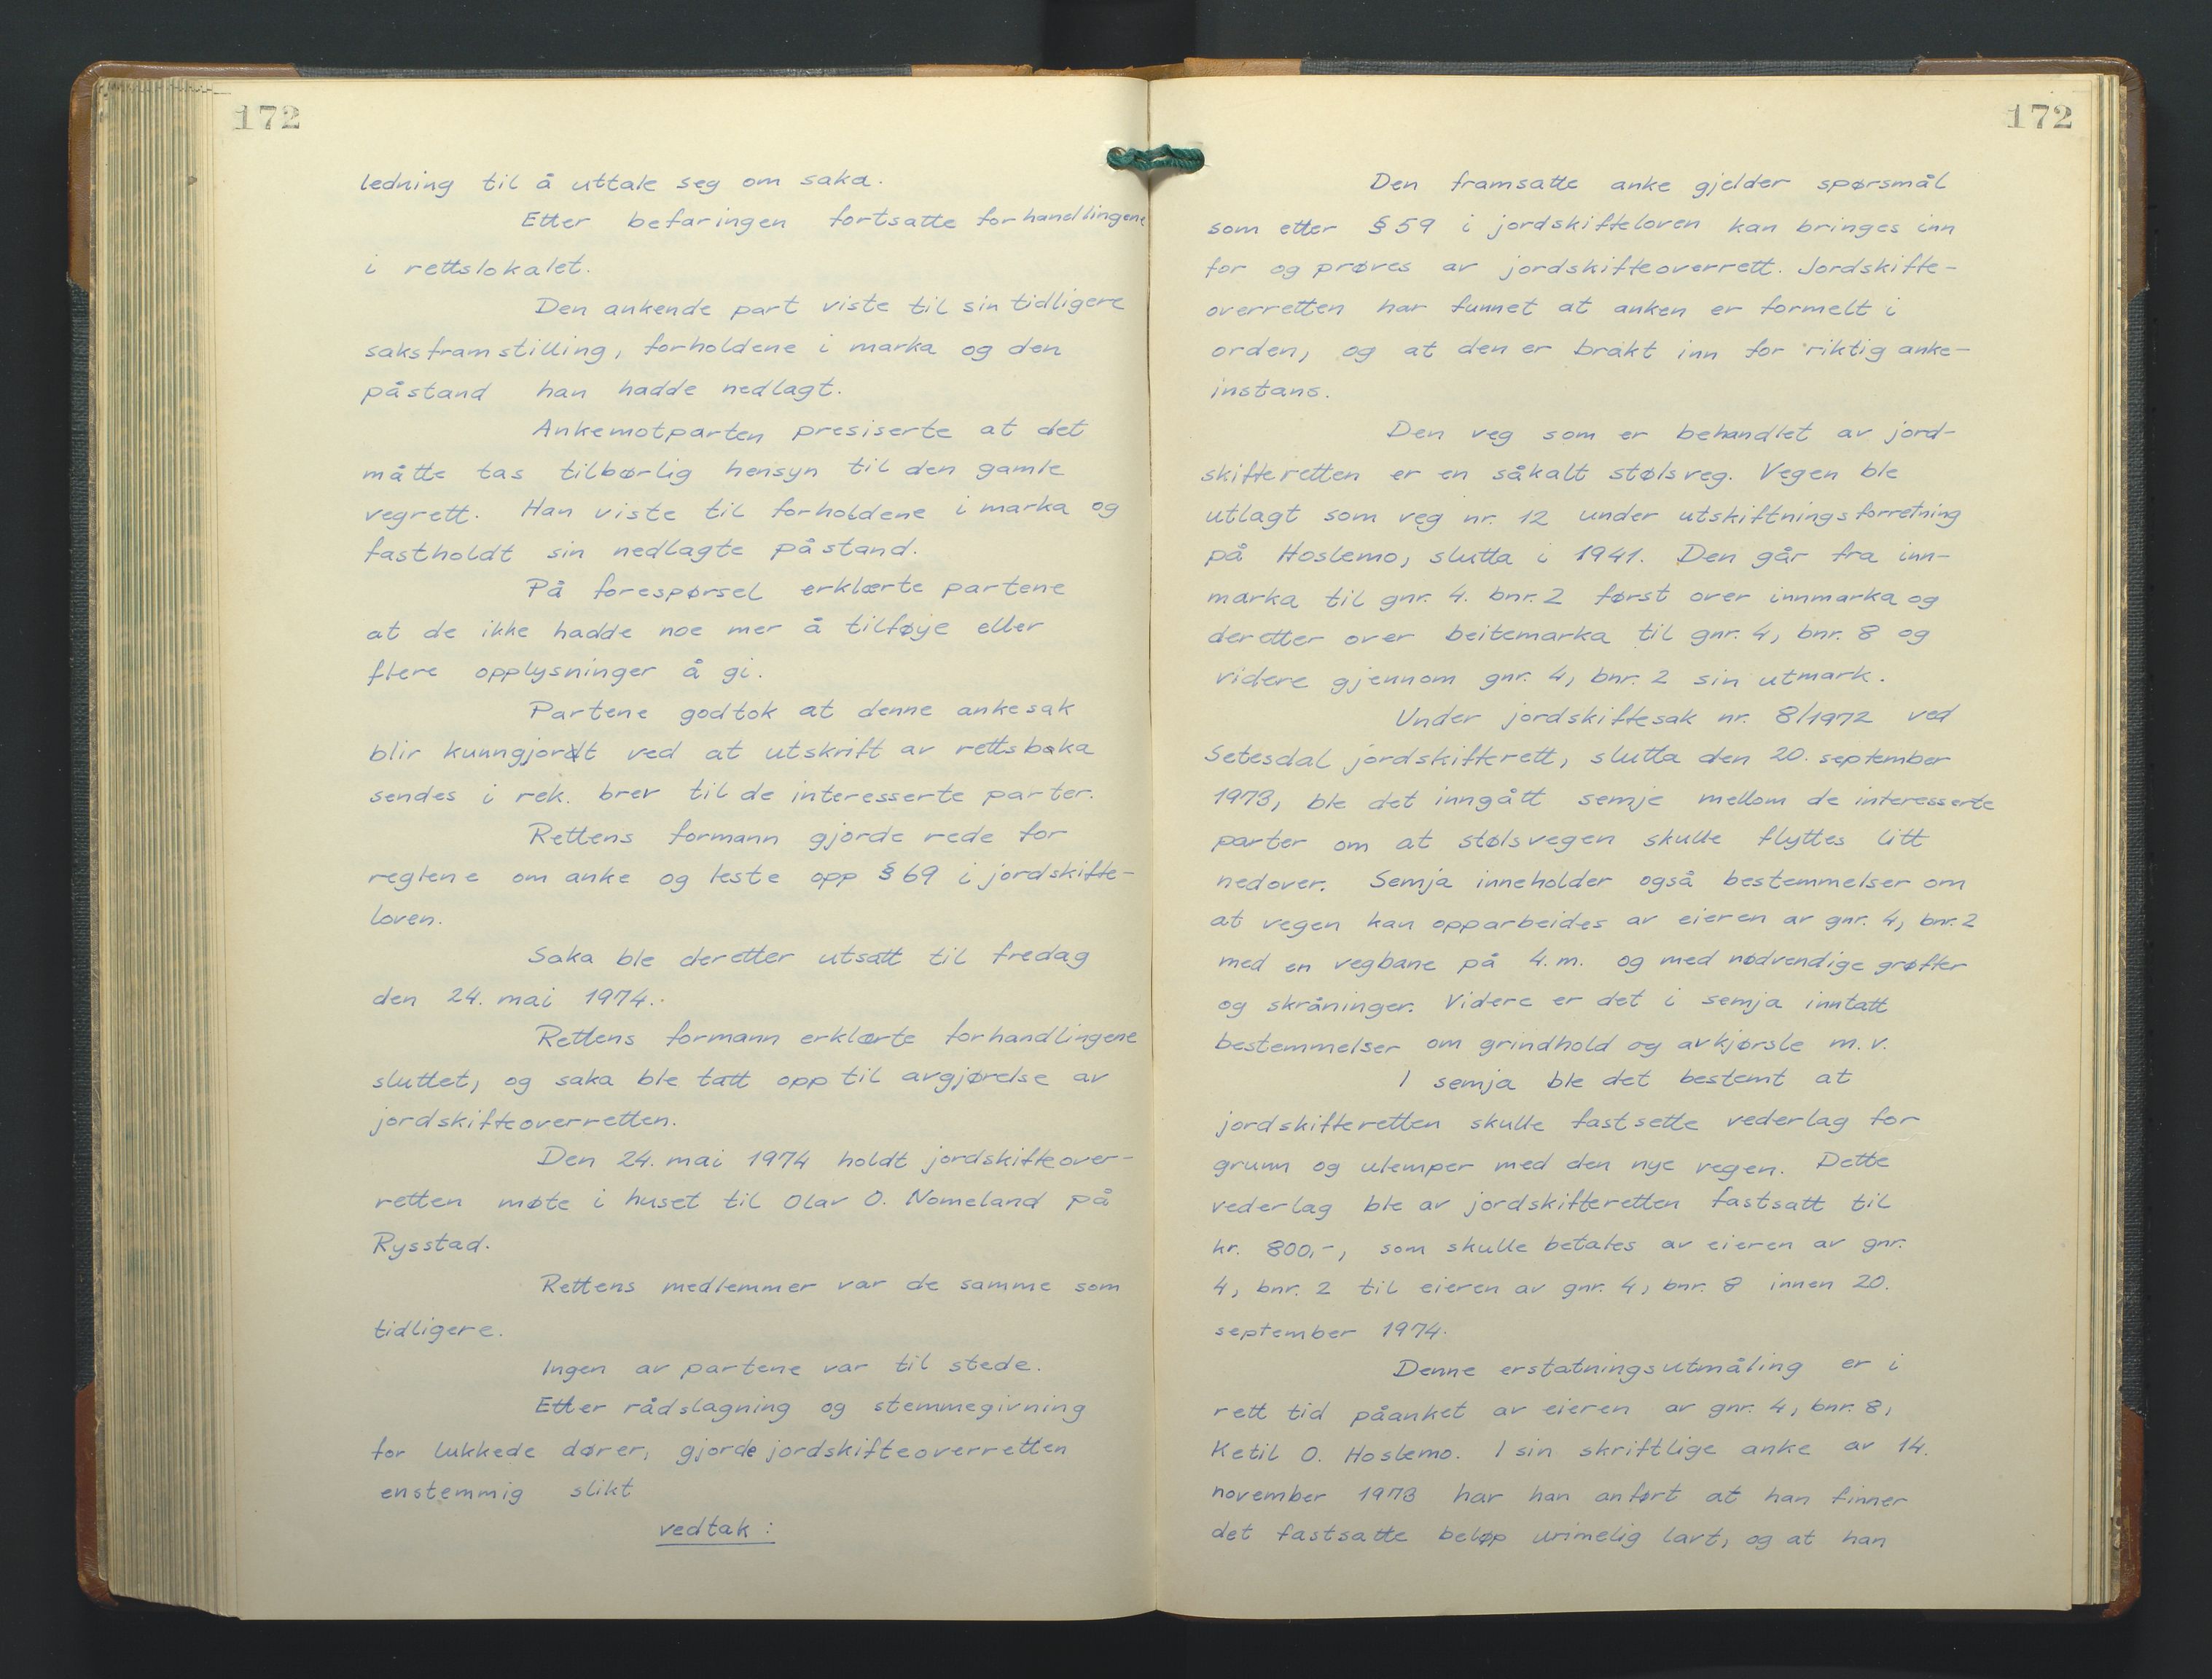 172
ledning til å uttale seg om saka.
Etter befaringen fortsatte forhandlingene
i rettslokalet.
Den ankende part viste til sin tidligere
saksframstilling, forholdene i marka og den
påstand han hadde nedlagt.
Ankemotparten presiserte at det
måtte tas tilbørlig hensyn til den gamle
vegrett. Han viste til forholdene i marka og
fastholdt sin nedlagte påstand.
På forespørsel erklærte partene
at de ikke hadde noe mer å tilføye eller
flere opplysninger å gi.
Partene godtok at denne ankesak
blir kunngjordt ved at utskrift av rettsboka
sendes i rek. brev til de interesserte parter.
Rettens formann gjorde rede for
reglene om anke og leste opp § 69 i jordskifte-
loven.
Saka ble deretter utsatt til fredag
den 24. mai 1974.
Rettens formann erklærte forhandlingene
sluttet, og saka ble tatt opp til avgjørelse av
jordskifteoverretten.
Den 24. mai 1974 holdt jordskifteover-
retten møte i huset til Olav O. Nomeland på
Rysstad.
Rettens medlemmer var de samme som
tidligere.
Ingen av partene var til stede.
Etter rådslagning og stemmegivning
for lukkede dører, gjorde jordskifteoverretten
enstemmig slikt
vedtak:
172
Den framsatte anke gjelder spørsmål
som etter § 59 i jordskifteloven kan bringes inn
for og prøves av jordskifteoverrett. Jordskifte-
overretten har funnet at anken er formelt i
orden, og at den er brakt inn for riktig anke-
instans.
Den veg som er behandlet av jord-
skifteretten er en såkalt stølsveg. Vegen ble
utlagt som veg nr. 12 under utskiftningsforretning
på Hoslemo, slutta i 1941. Den går fra inn-
marka til gnr. 4. bnr. 2 først over innmarka og
deretter over beitemarka til gnr. 4, bnr. 8 og
videre gjennom gnr. 4, bnr. 2 sin utmark.
Under jordskiftesak nr. 8/1972 ved
Setesdal jordskifterett, slutta den 20. september
1973, ble det inngått semje mellom de interesserte
parter om at stølsvegen skulle flyttes litt
nedover. Semja inneholder også bestemmelser om
at vegen kan opparbeides av eieren av gnr. 4, bnr. 2
med en vegbane på 4. m. og med nødvendige grøfter
og skråninger. Videre er det i semja inntatt
bestemmelser om grindhold og avkjørsle m.v.
I semja ble det bestemt at
jordskifteretten skulle fastsette vederlag for
grunn og ulemper med den nye vegen. Dette
vederlag ble av jordskifteretten fastsatt til
kr. 800,-, som skulle betales av eieren av gnr.
4, bnr. 2 til eieren av gnr. 4, bnr. 8 innen 20.
september 1974.
Denne erstatningsutmåling er i
rett tid påanket av eieren av gnr. 4, bnr. 8,
Ketil O. Hoslemo. I sin skriftlige anke av 14.
november 1973 har han anført at han finner
det fastsatte beløp urimelig lavt, og at han